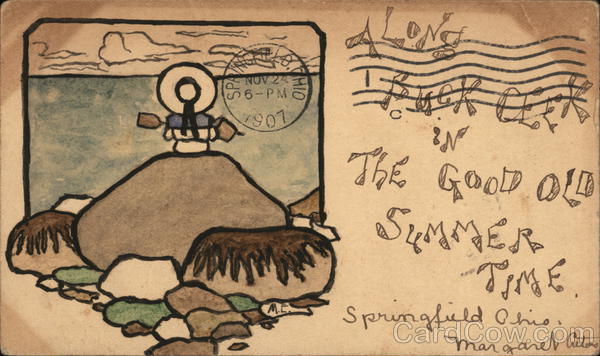 ALONG
BUCK CREEK
IN
THE GOOD OLD
SUMMER
TIME.
Springfield Ohio.
Margaret
SPRINGFIELD, OHIO
NOV 24
6-PM
1907
M.C.
CardCow.com